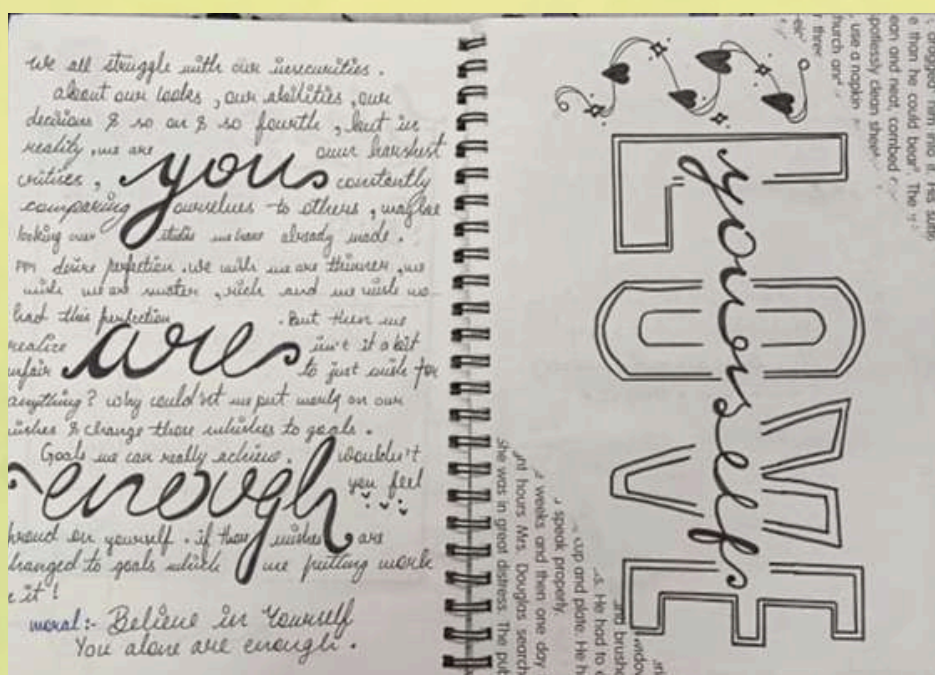 We all struggle with our insecurities.
about our looks, our abilities, our
decisions & so on & so fourth, but in
reality, we are our harshest
critises, you constantly
comparing ourselves to others, maybe
looking over studies we have already made.
desire perfection. we wish we are thinner, we
wish we are smater, rich and we wish we
had this perfection. But then we
realize are isn't it a bit
unfair to just wish for
anything? why could'nt we put work on our
wishes & change those whishes to goals.
Goals we can really achieve. Wouldn't
enough you feel
proud on yourself. if those wishes are
changed to goals which we putting work
it!
moral:- Believe in Yourself
You alone are enough.
LOVE
yourself
dragged him into it. His
e than he could bear". The
ean and neat, combed
spotlessly clean
use a napkin
church
She was in great distress. The
hours Mrs. Douglas search
weeks and then one day
speak properly.
cup and plate. He
He had to
brushe